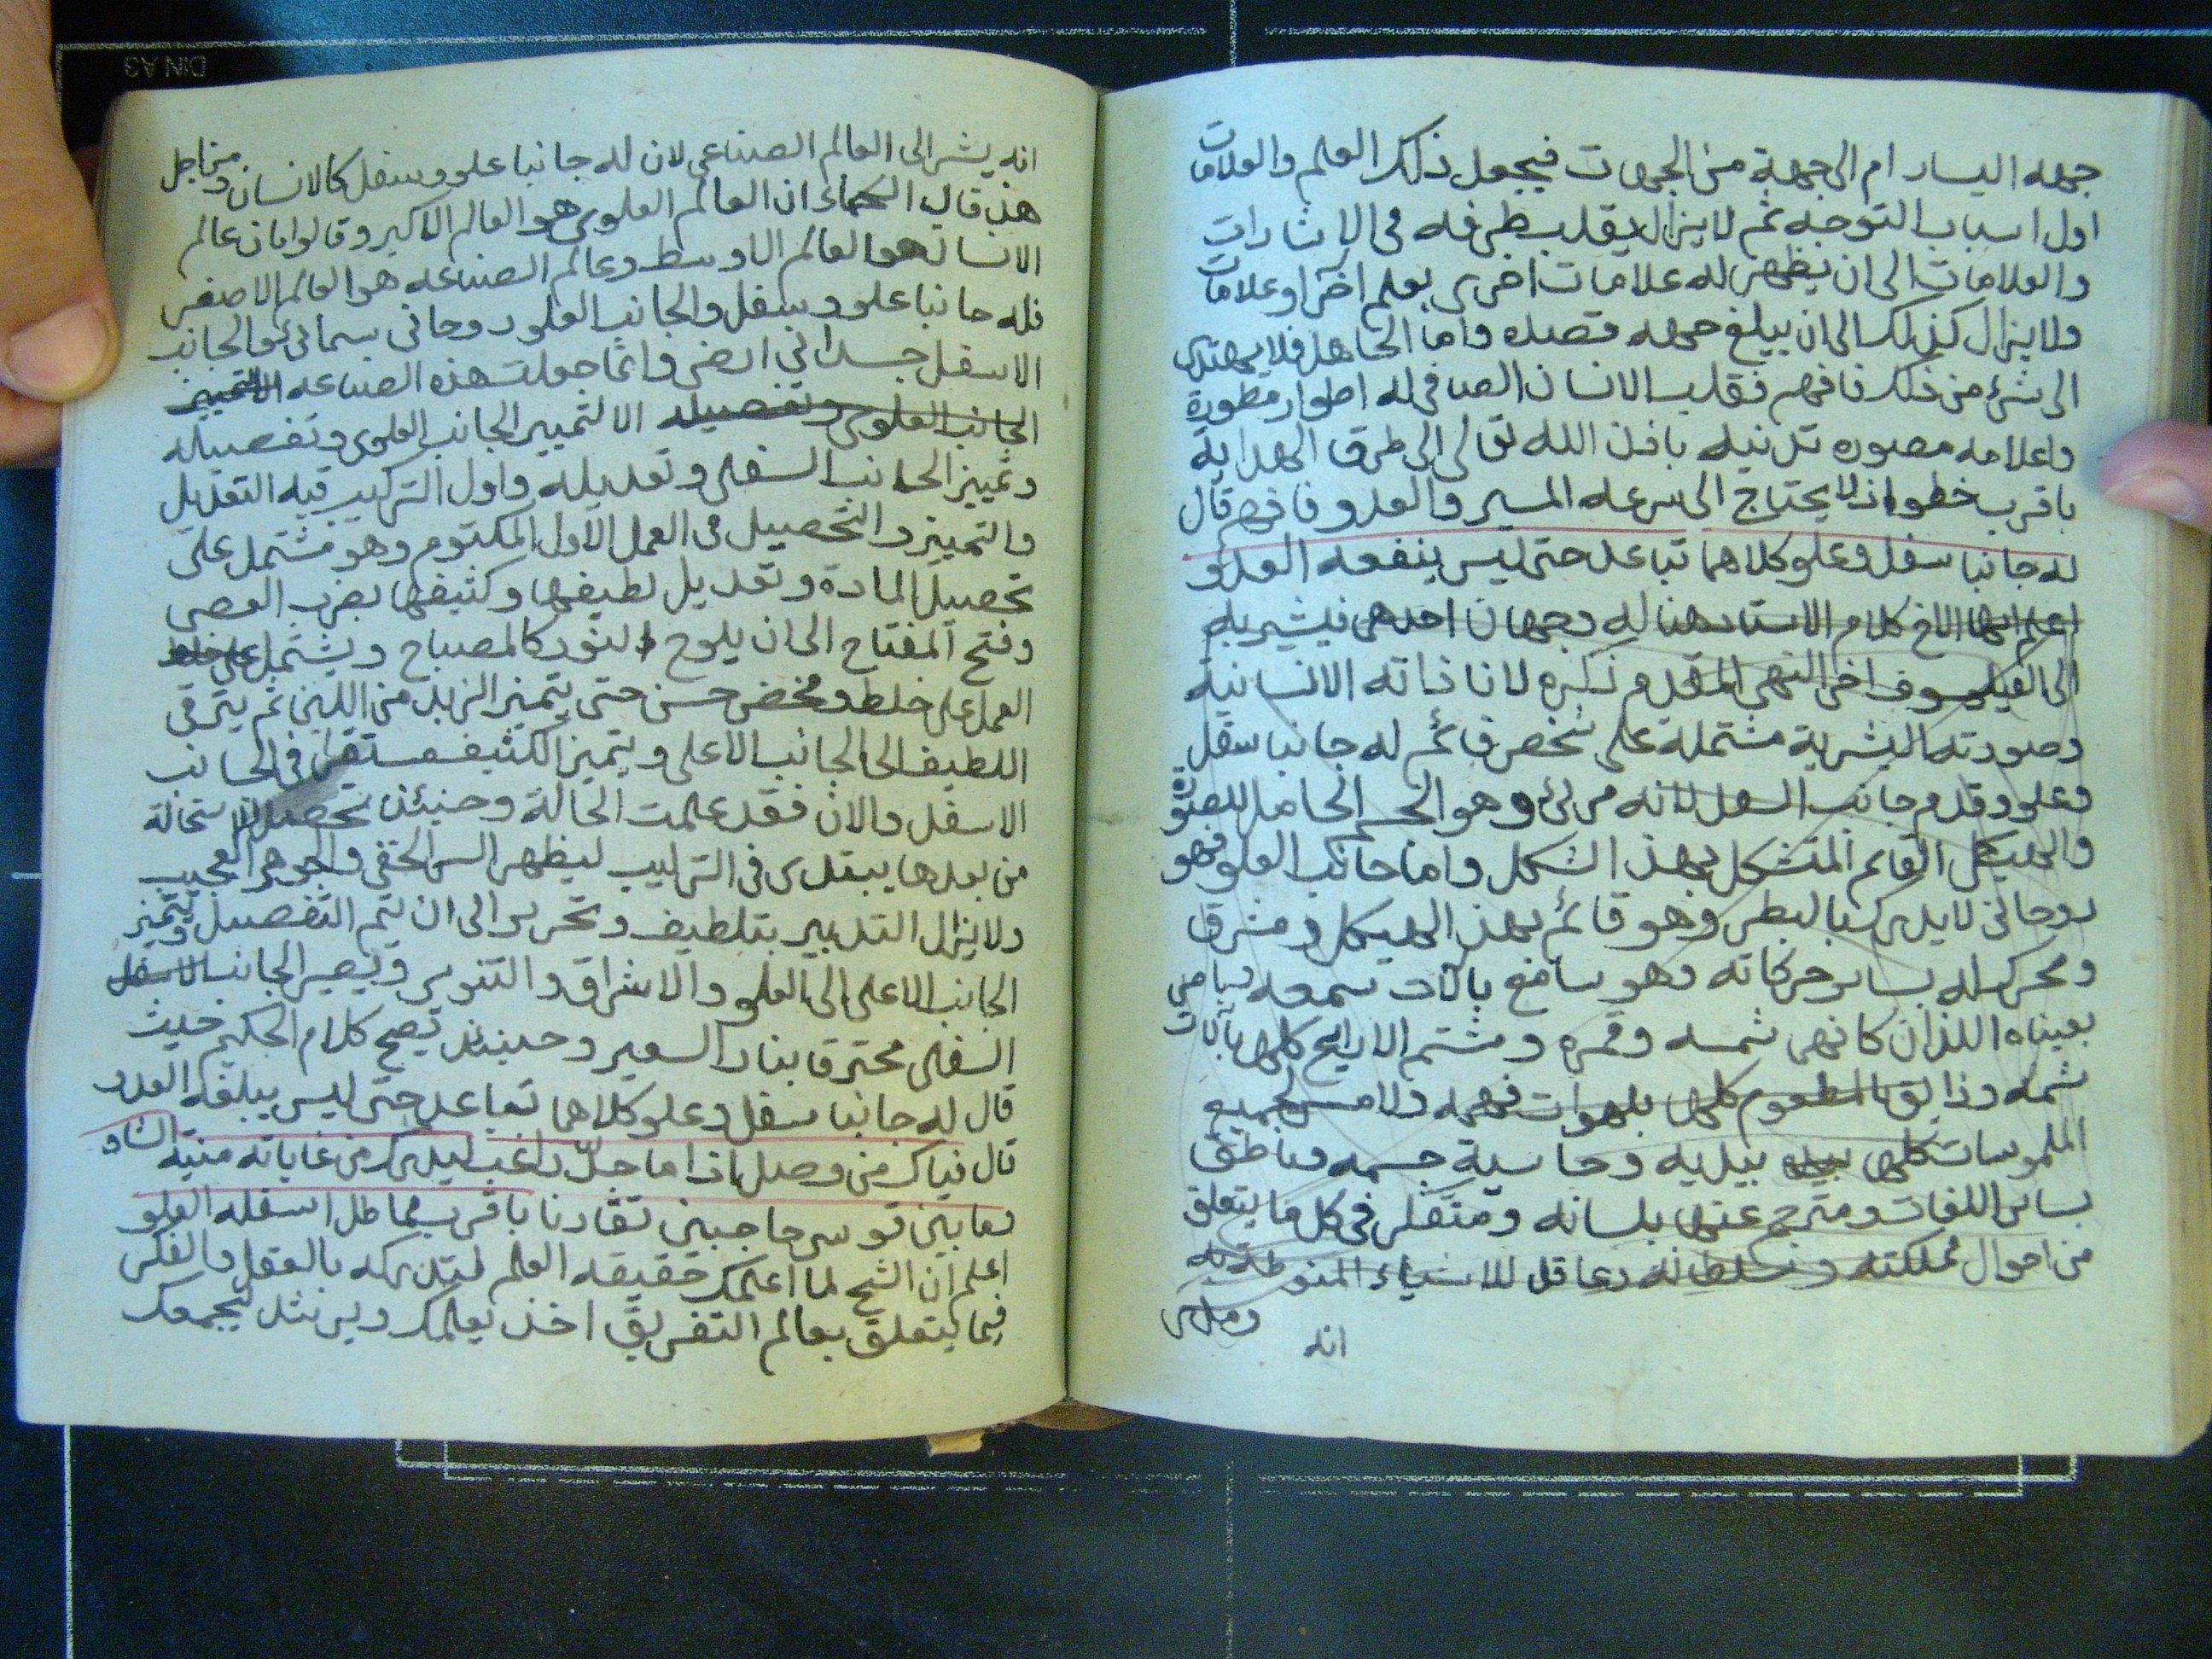 جهه اليسار ام الى جهة من الجهات فيجعل ذلك العلم والعلامات
اول اسباب التوجه ثم لايزال يقلب طرفه فى الاشارات
والعلامات الى ان يظهر له علامات اخرى بعلم آخر او علامات
ولا يزال كذلك الى ان يبلغ جهه قصده واما الجاهل فلا يهتدى
الى شئ من ذلك فافهم فقلب الانسان الصافى له اطوار مطورة
واعلامه مصوره تدنيه باذن الله تعالى الى طرق الهداية
باقرب خطو اذ لا يحتاج الى سرعه المسير والعدو فافهم قال
له جانبا سفل وعلو كلاهما تباعد حتى ليس ينفعه العدو
اعلم ايها الاخ كلام الاستاد هنا له وجهان احدهى فيشير به
الى الفيلسوف اخى النهى المقدم ذكره لانا ذاته الانسانية
وصورته البشرية مشتملة على شخص قائم له جانبا سفل
وعلو وقدم جانب السفل لانه مرئى وهو الجسم الحامل للصورة
والهيكل القائم المتشكل بهذ الشكل واما جانب العلو فهو
روحانى لا يدرك بالبطر وهو قائم بهذ الهيكل ومشرق
ومحرك له بساير حركاته وهو سامع بالات سمعه
بعيناه اللذان كانهى شمسه وقمره ومشتم الارايح كلها بآلات
شمه وذايق المطعوم كلها بلهوات فهمه ولامس لجميع
الملموسات كلها بيديه وحاسية جسمه وناطق
بساير اللغات ومترجم عنها بلسانه ومتفكر فى كل ما يتعلق
من احوال مملكته وسلطانه وعاقل للاشياء المنوطة به
انه
انه يشر الى العالم الصناعى لان له جانبا علو وسفل كالانسان ومن اجل
هذ قال الحكماء ان العالم العلوى هو العالم الاكبر وقالوا بان عالم
الانسان هو العالم الاوسط وعالم الصناعه هو العالم الاصغر
فله جانبا علو وسفل والجانب العلو روحانى سمائى والجانب
الاسفل جسدانى ارضى وانما جعلت هذه الصناعه الا لتمييز
الجانب العلوى وتفصيله الا لتمييز الجانب العلوى وتفصيله
وتمييز الجانب السفلى وتعديله واول التركيب فيه التعديل
والتمييز والتحصيل فى العمل الاول المكتوم وهو مشتمل على
تحصيل المادة وتعديل لطيفها وكثيفها بضرب العصى
وفتح المفتاح الى ان يلوح النور كالمصباح ويشتمل على خلط
العمل على خلط ومخض حسن حتى يتميز الزبد من اللبن ثم يترقى
اللطيف الى الجانب الاعلى ويتميز الكثيف مستقر فى الجانب
الاسفل والان فقد علمت الحالة وحنيئذ تحصل الاستحالة
من بعدها يبتدى فى التركيب ليظهر السر الخفى والجوهر العجيب
ولا يزال التدبير بتلطيف وتحرير الى ان يتم التفصيل ويتميز
الجانب الاعلى الى العلو والاشراق والتنوير ويصير الجانب الاسفل
السفلى محترقا بنار السعير وحينئذ يصح كلام الحكيم حيث
قال له جانبا سفل وعلو كلاهما تباعد حتى ليس يبلغه العدو
قال فياك من وصل اذا ما جدّ راغب ليدرك من غاياته منتيه الشاو
وما بين قوسى حاجبين تقارنا باقرب مما طل اسفله العلو
اعلم ان الشيخ لما اعلمك حقيقه العلم لتدركه بالعقل والفكر
فيما يتعلق بعالم التفريق اخذ يعلمك ويرشد ليجمعك